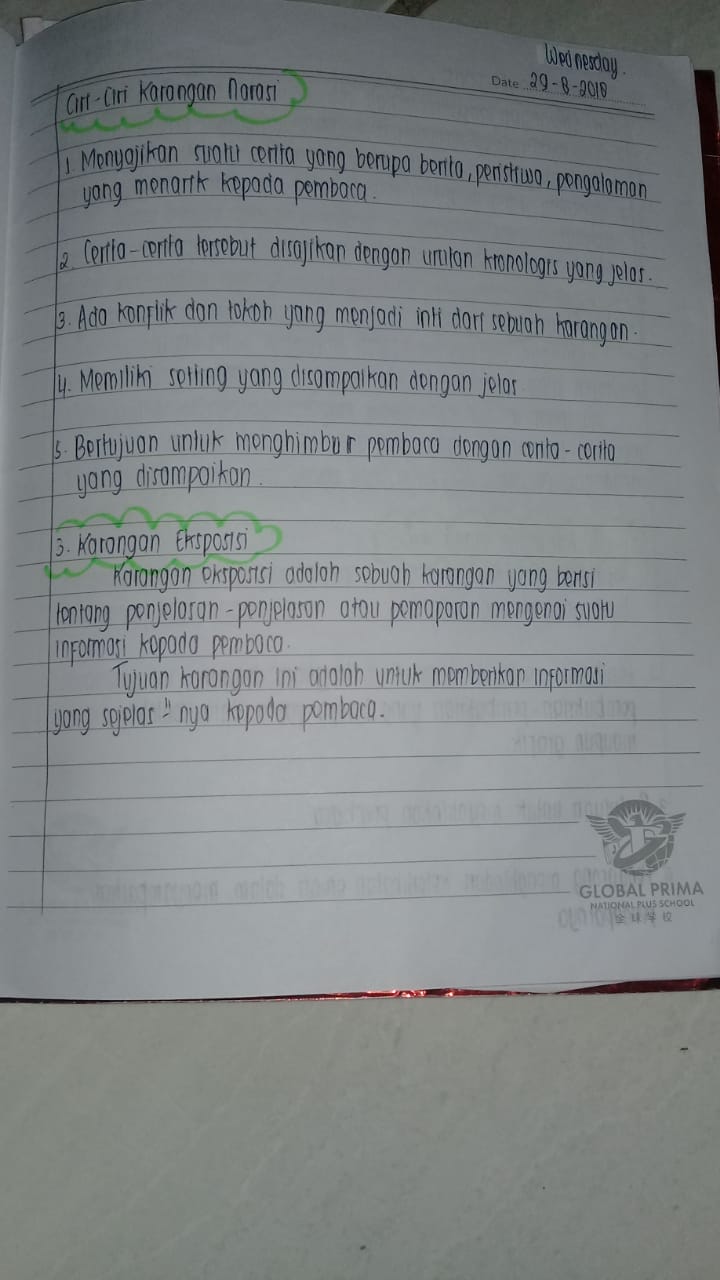 Wednesday.
Date 29-8-2018
Ciri-Ciri Karangan Narasi
1. Menyajikan suatu cerita yang berupa berita, peristiwa, pengalaman
yang menarik kepada pembaca.
2. Cerita-cerita tersebut disajikan dengan urutan kronologis yang jelas.
3. Ada konflik dan tokoh yang menjadi inti dari sebuah karangan.
4. Memiliki setting yang disampaikan dengan jelas
5. Bertujuan untuk menghimbur pembaca dengan cerita-cerita
yang disampaikan.
3. Karangan Eksposisi
Karangan eksposisi adalah sebuah karangan yang berisi
tentang penjelasan-penjelasan atau pemaparan mengenai suatu
informasi kepada pembaca.
Tujuan karangan ini adalah untuk memberikan informasi
yang sejelas"nya kepada pembaca.
GLOBAL PRIMA
NATIONAL PLUS SCHOOL
全球学校